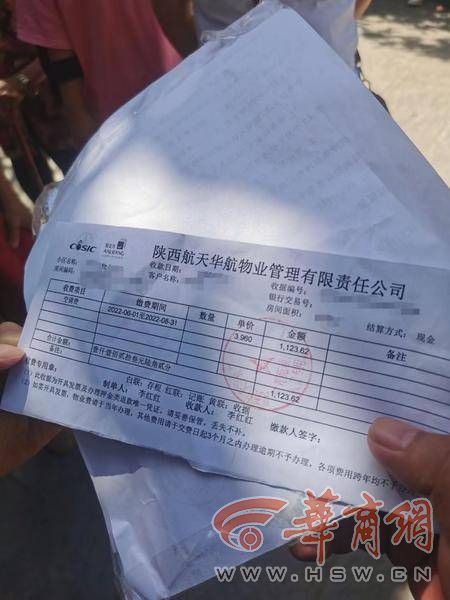 CASIC
陕西航天华航物业管理有限责任公司
小区名称:
收款日期:
收据编号:
房间编码:
客户名称:
银行交易号:
房间面积:
结算方式: 现金
收费项目 缴费期间 数量 单价 金额 备注
2022-06-01至2022-08-31 3.960 1,123.62
合计: 壹仟壹佰贰拾叁元陆角贰分 1,123.62
备注:
收费专用章:
白联: 存根 红联: 记账 黄联: 收据
制单人: 李红红 收款人: 李红红 缴款人签字:
(1) 此收据为开具发票及办理押金类退款唯一凭证, 请妥善保管, 丢失不补。
(2) 如需开具发票, 物业费请于当年办理, 其他费用请于交费日起3个月之内办理逾期不予办理, 各项费用跨年均不予
華商網
WWW.HSW.CN